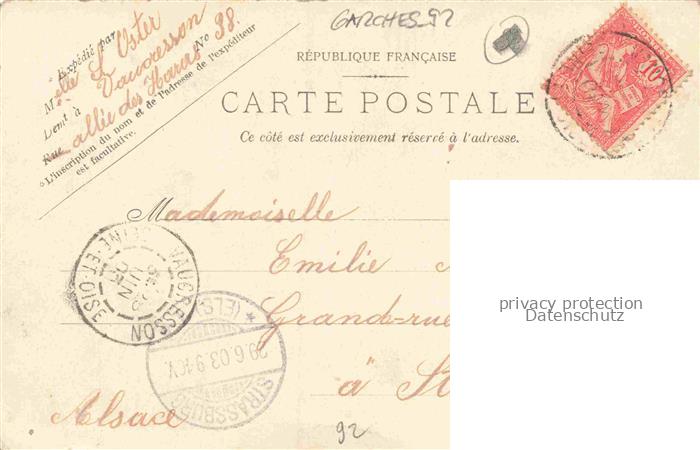 GARCHES_92
RÉPUBLIQUE FRANÇAISE
CARTE POSTALE
Ce côté est exclusivement réservé à l'adresse.
Expédié par
Mlle L Oster
Demt à Vaucresson
Rue allée des Haras No 38.
L'inscription du nom et de l'adresse de l'expéditeur
est facultative.
10
Mademoiselle
Emilie
Grand-rue
à St
Alsace
VAUCRESSON
SEINE-ET-OISE
JUIN
03
STRASSBURG
(ELS)
29.6.03.9-10V.
92
privacy protection
Datenschutz